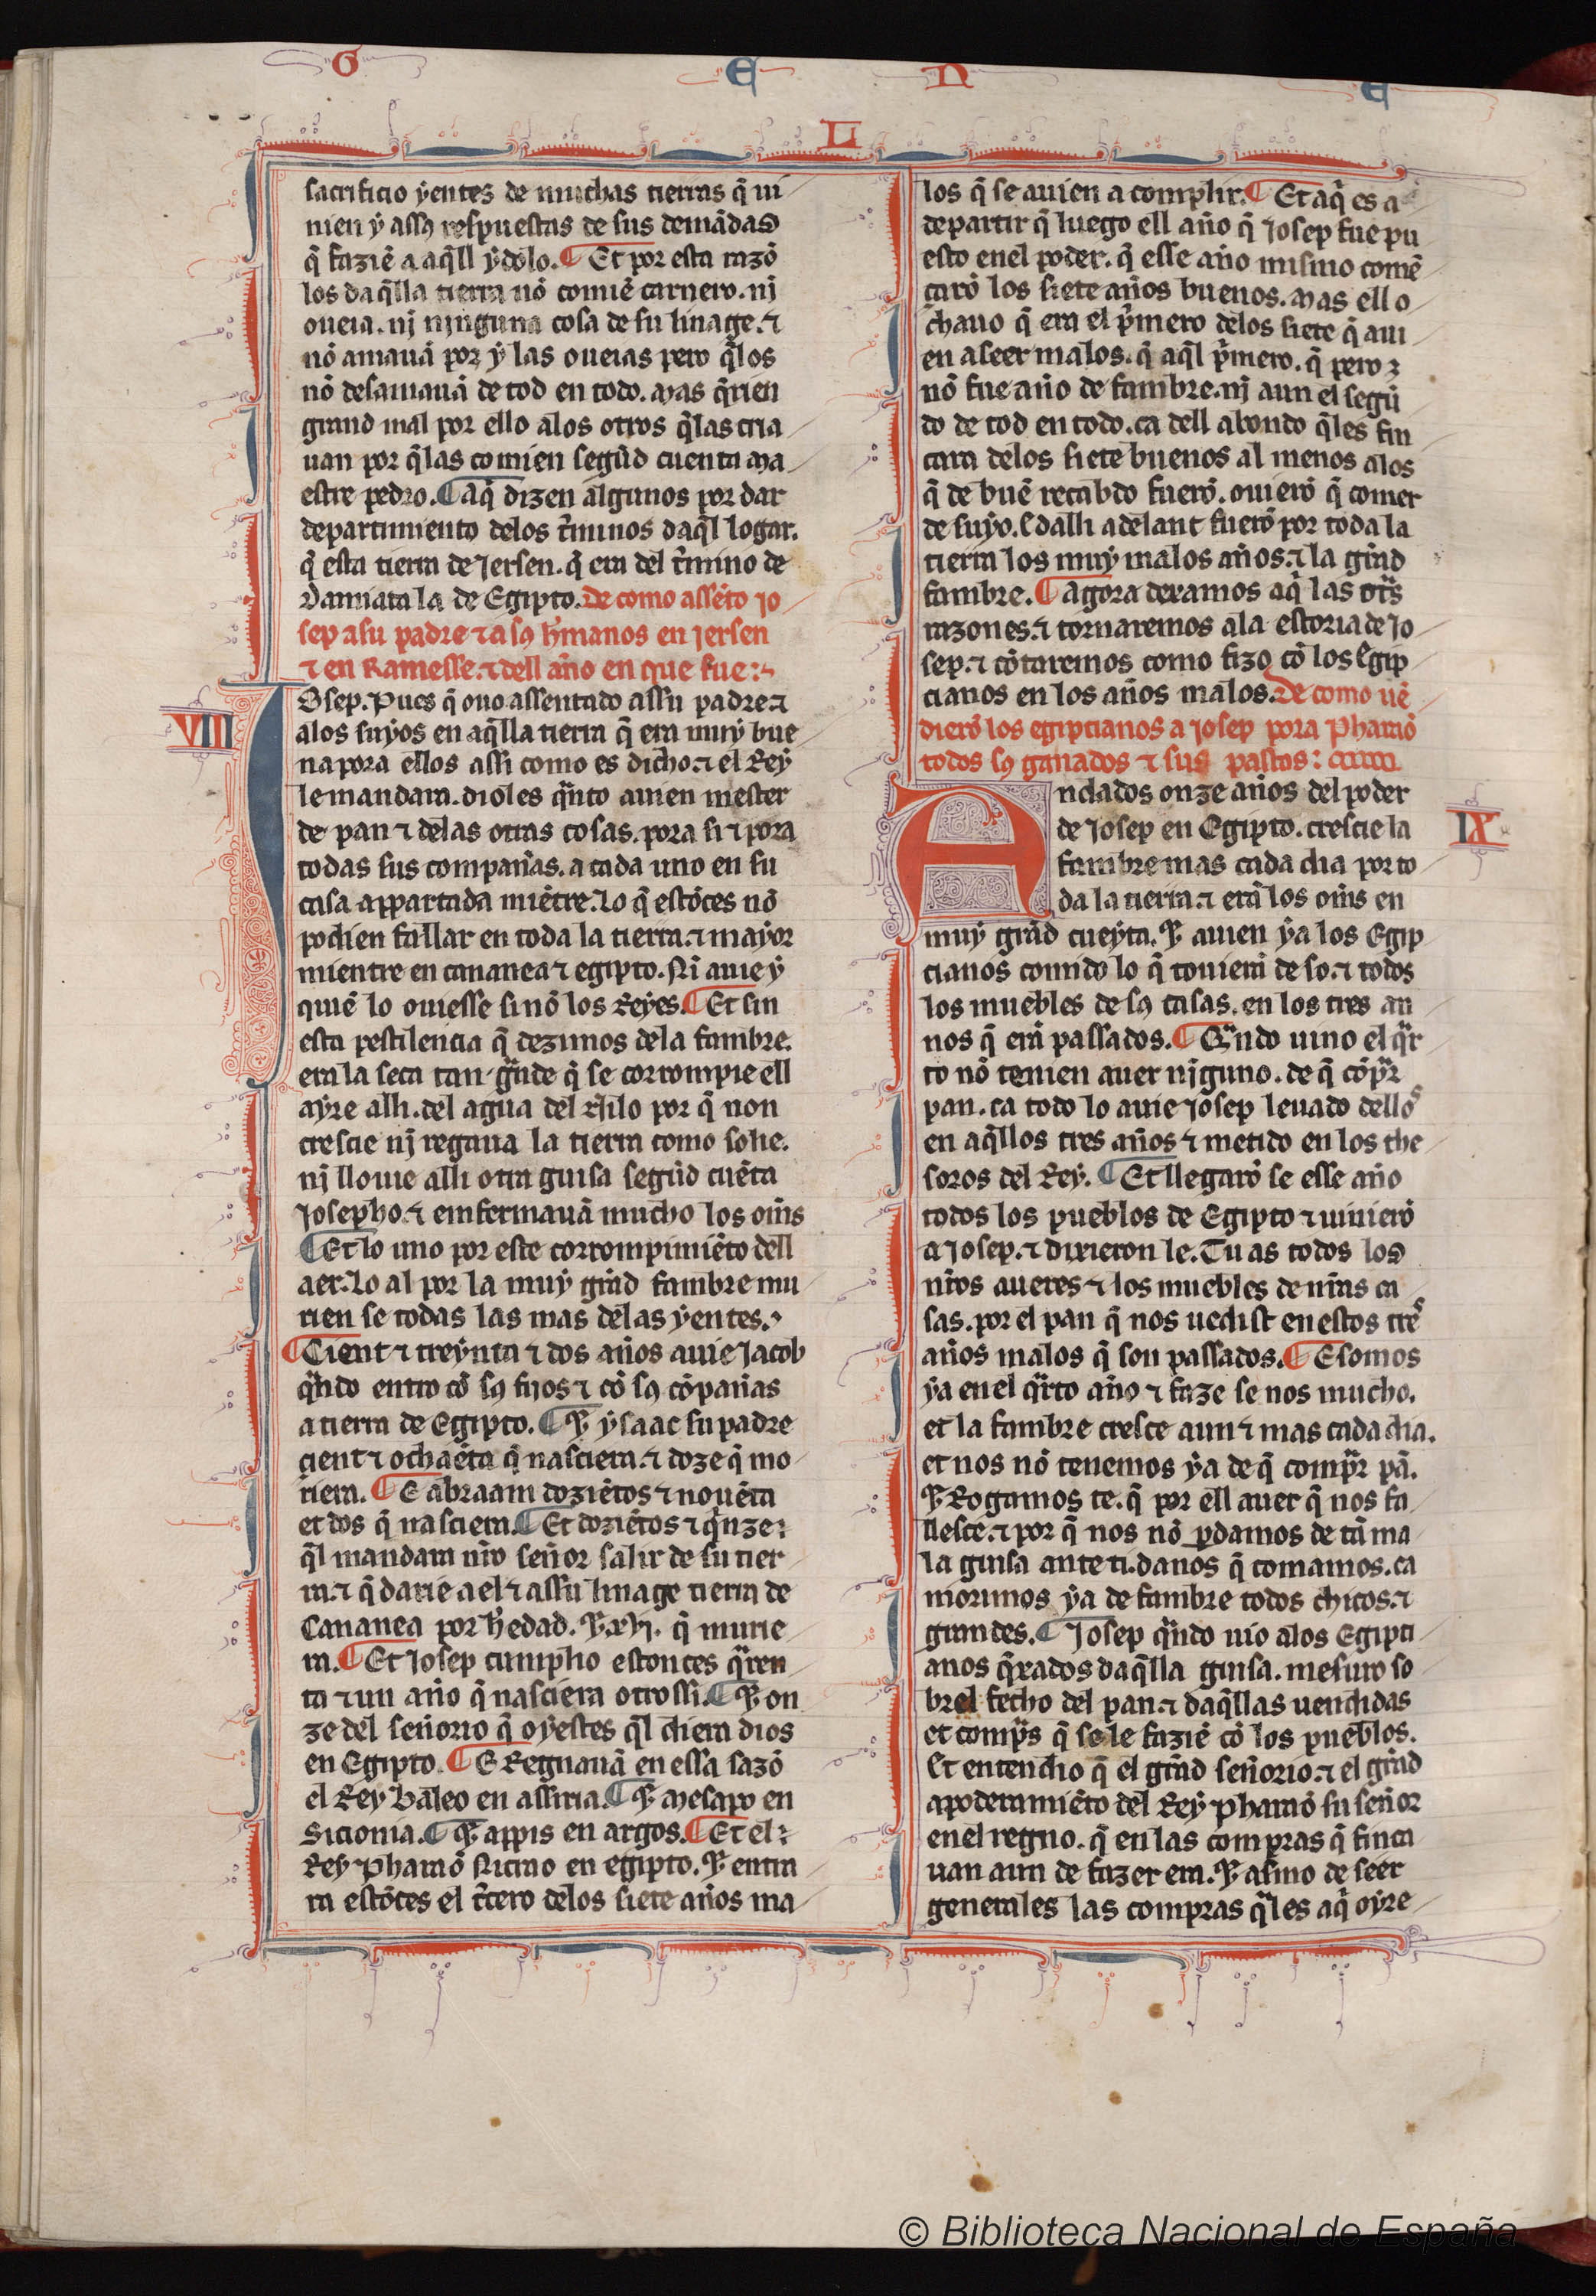 G E N E
L
sacrificio yentes de muchas tierras q̃ ui
nien y assꝯ respuestas de sus demãdas
q̃ faziẽ a aq̃ll ydolo. ¶ Et por esta razõ
los daq̃lla tierra nõ comiẽ carnero. nj
oueia. nj njnguna cosa de su linage. ⁊
nõ amauã por y las oueias pero q̃los
nõ desamauã de tod en todo. Mas q̃rien
grand mal por ello alos otros q̃las cria
uan por q̃las comien segũd cuenta Ma
estre pedro. ¶ Aq̃ dizen algunos por dar
departimiento delos t̃minos daq̃l logar.
q̃ esta tierra de Jersen. q̃ era del t̃mino de
Damiata la de Egipto. De como assẽto Jo
sep asu padre ⁊ a sꝯ h̃manos en Jersen
⁊ en Ramesse. ⁊ dell año en que fue:
VIII
Josep. Pues q̃ ouo assentado assu padre ⁊
alos suyos en aq̃lla tierra q̃ era muy bue
na pora ellos assi como es dicho. ⁊ el Rey
le mandara. dioles q̃nto auien mester
de pan ⁊ delas otras cosas. pora si ⁊ pora
todas sus compañas. a cada uno en su
casa appartada miẽtre. Lo q̃ estõces nõ
podien fallar en toda la tierra. ⁊ mayor
mientre en cananea ⁊ egipto. Nĩ auie y
quiẽ lo ouiesse si nõ los Reyes. ¶ Et sin
esta pestilencia q̃ dezimos dela fambre.
era la seca tan grãde q̃ se corrompie ell
ayre alli. del agua del Nilo por q̃ non
crescie nj regaua la tierra como solie.
nj llouie alli otra guisa segũd cuẽta
Josepho. ⁊ enfermauã mucho los om̃s
¶ Et lo uno por este corrompimiẽto dell
aer. Lo al por la muy grãd fambre mu
rien se todas las mas delas yentes.
¶ Cient ⁊ treynta ⁊ dos años auie Jacob
q̃ndo entro cõ sꝯ fijos ⁊ cõ sꝯ cõpañas
a tierra de Egipto. ¶ ⁊ ysaac su padre
cient ⁊ ochaẽta q̃ nasciera. ⁊ doze q̃ mo
riera. ¶ E abraam doziẽtos ⁊ nouẽta
et dos q̃ nasciera. ¶ Et doziẽtos ⁊ q̃nze:
q̃l mandara nr̃o señor salir de su tier
ra. ⁊ q̃ darie a el ⁊ assu linage tierra de
Cananea por h̃edad. ⁊ .xvij. q̃ murie
ra. ¶ Et Josep cumplio estonces q̃ren
ta ⁊ un año q̃ nasciera otrossi. ¶ ⁊ on
ze del señorio q̃ oyestes q̃l diera dios
en Egipto. ¶ E Regnauã en essa sazõ
el Rey Baleo en assiria. ¶ ⁊ Mesapo en
Sicionia. ¶ ⁊ appis en argos. ¶ Et el:
Rey Pharaõ Nicrao en egipto. ⁊ entra
ra estõces el t̃cero delos siete años ma
los q̃ se auien a complir. ¶ Et aq̃ es a
departir q̃ luego ell año q̃ Josep fue pu
esto enel poder. q̃ esse año mismo comẽ
çarõ los siete años buenos. Mas ell o
chauo q̃ era el p̃mero delos siete q̃ aui
en a seer malos. q̃ aq̃l p̃mero. q̃ pero
nõ fue año de fambre. nj aun el segũ
do de tod en todo. ca dell abondo q̃les fin
cara delos siete buenos al menos alos
q̃ de buẽ recabdo fuerõ. ouierõ q̃ comer
de suyo. E dalli adelant fuerõ por toda la
tierra los muy malos años. ⁊ la grãd
fambre. ¶ Agora dexamos aq̃ las otr̃s
razones. ⁊ tornaremos ala estoria de Jo
sep. ⁊ cõtaremos como fizo cõ los Egip
cianos en los años malos. De como uẽ
dierõ los egipcianos a Josep pora Pharaõ
todos sꝯ ganados ⁊ sus pastos:
IX
Andados onze años del poder
de Josep en Egipto. crescie la
fambre mas cada dia por to
da la tierra. ⁊ erã los om̃s en
muy grãd cueyta. ⁊ auien ya los Egip
cianos comido lo q̃ touierã de so. ⁊ todos
los muebles de sꝯ casas. en los tres an
nos q̃ erã passados. ¶ Q̃ndo uino el q̃r
to nõ tenien auer njguno. de q̃ cõpr̃
pan. ca todo lo auie Josep leuado dellos
en aq̃llos tres años ⁊ metido en los the
soros del Rey. ¶ Et llegarõ se esse año
todos los pueblos de Egipto ⁊ uinierõ
a Josep. ⁊ dixieron le. Tu as todos los
nr̃os aueres ⁊ los muebles de nr̃as ca
sas. por el pan q̃ nos uedist en estos tres
años malos q̃ son passados. ¶ E somos
ya enel q̃rto año ⁊ faze se nos mucho.
et la fambre cresce aun ⁊ mas cada dia.
et nos nõ tenemos ya de q̃ compr̃ pã.
⁊ Rogamos te. q̃ por ell auer q̃ nos fa
llesce. ⁊ por q̃ nos nõ ꝑdamos de tã ma
la guisa ante ti. danos q̃ comamos. ca
morimos ya de fambre todos chicos. ⁊
grandes. ¶ Josep q̃ndo uio alos Egipti
anos q̃xados daq̃lla guisa. mesuro so
brel fecho del pan. ⁊ daq̃llas uendidas
et compr̃s q̃ se le faziẽ cõ los pueblos.
Et entendio q̃ el grãd señorio. ⁊ el grãd
apoderamiẽto del Rey Pharaõ su señor
enel regno. q̃ en las compras q̃ finca
uan aun de fazer era. ⁊ asmo de seer
generales las compras q̃les aq̃ oyre
© Biblioteca Nacional de España